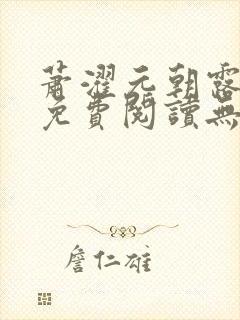 蕭濯元朝露
免費閱讀無
詹仁雄